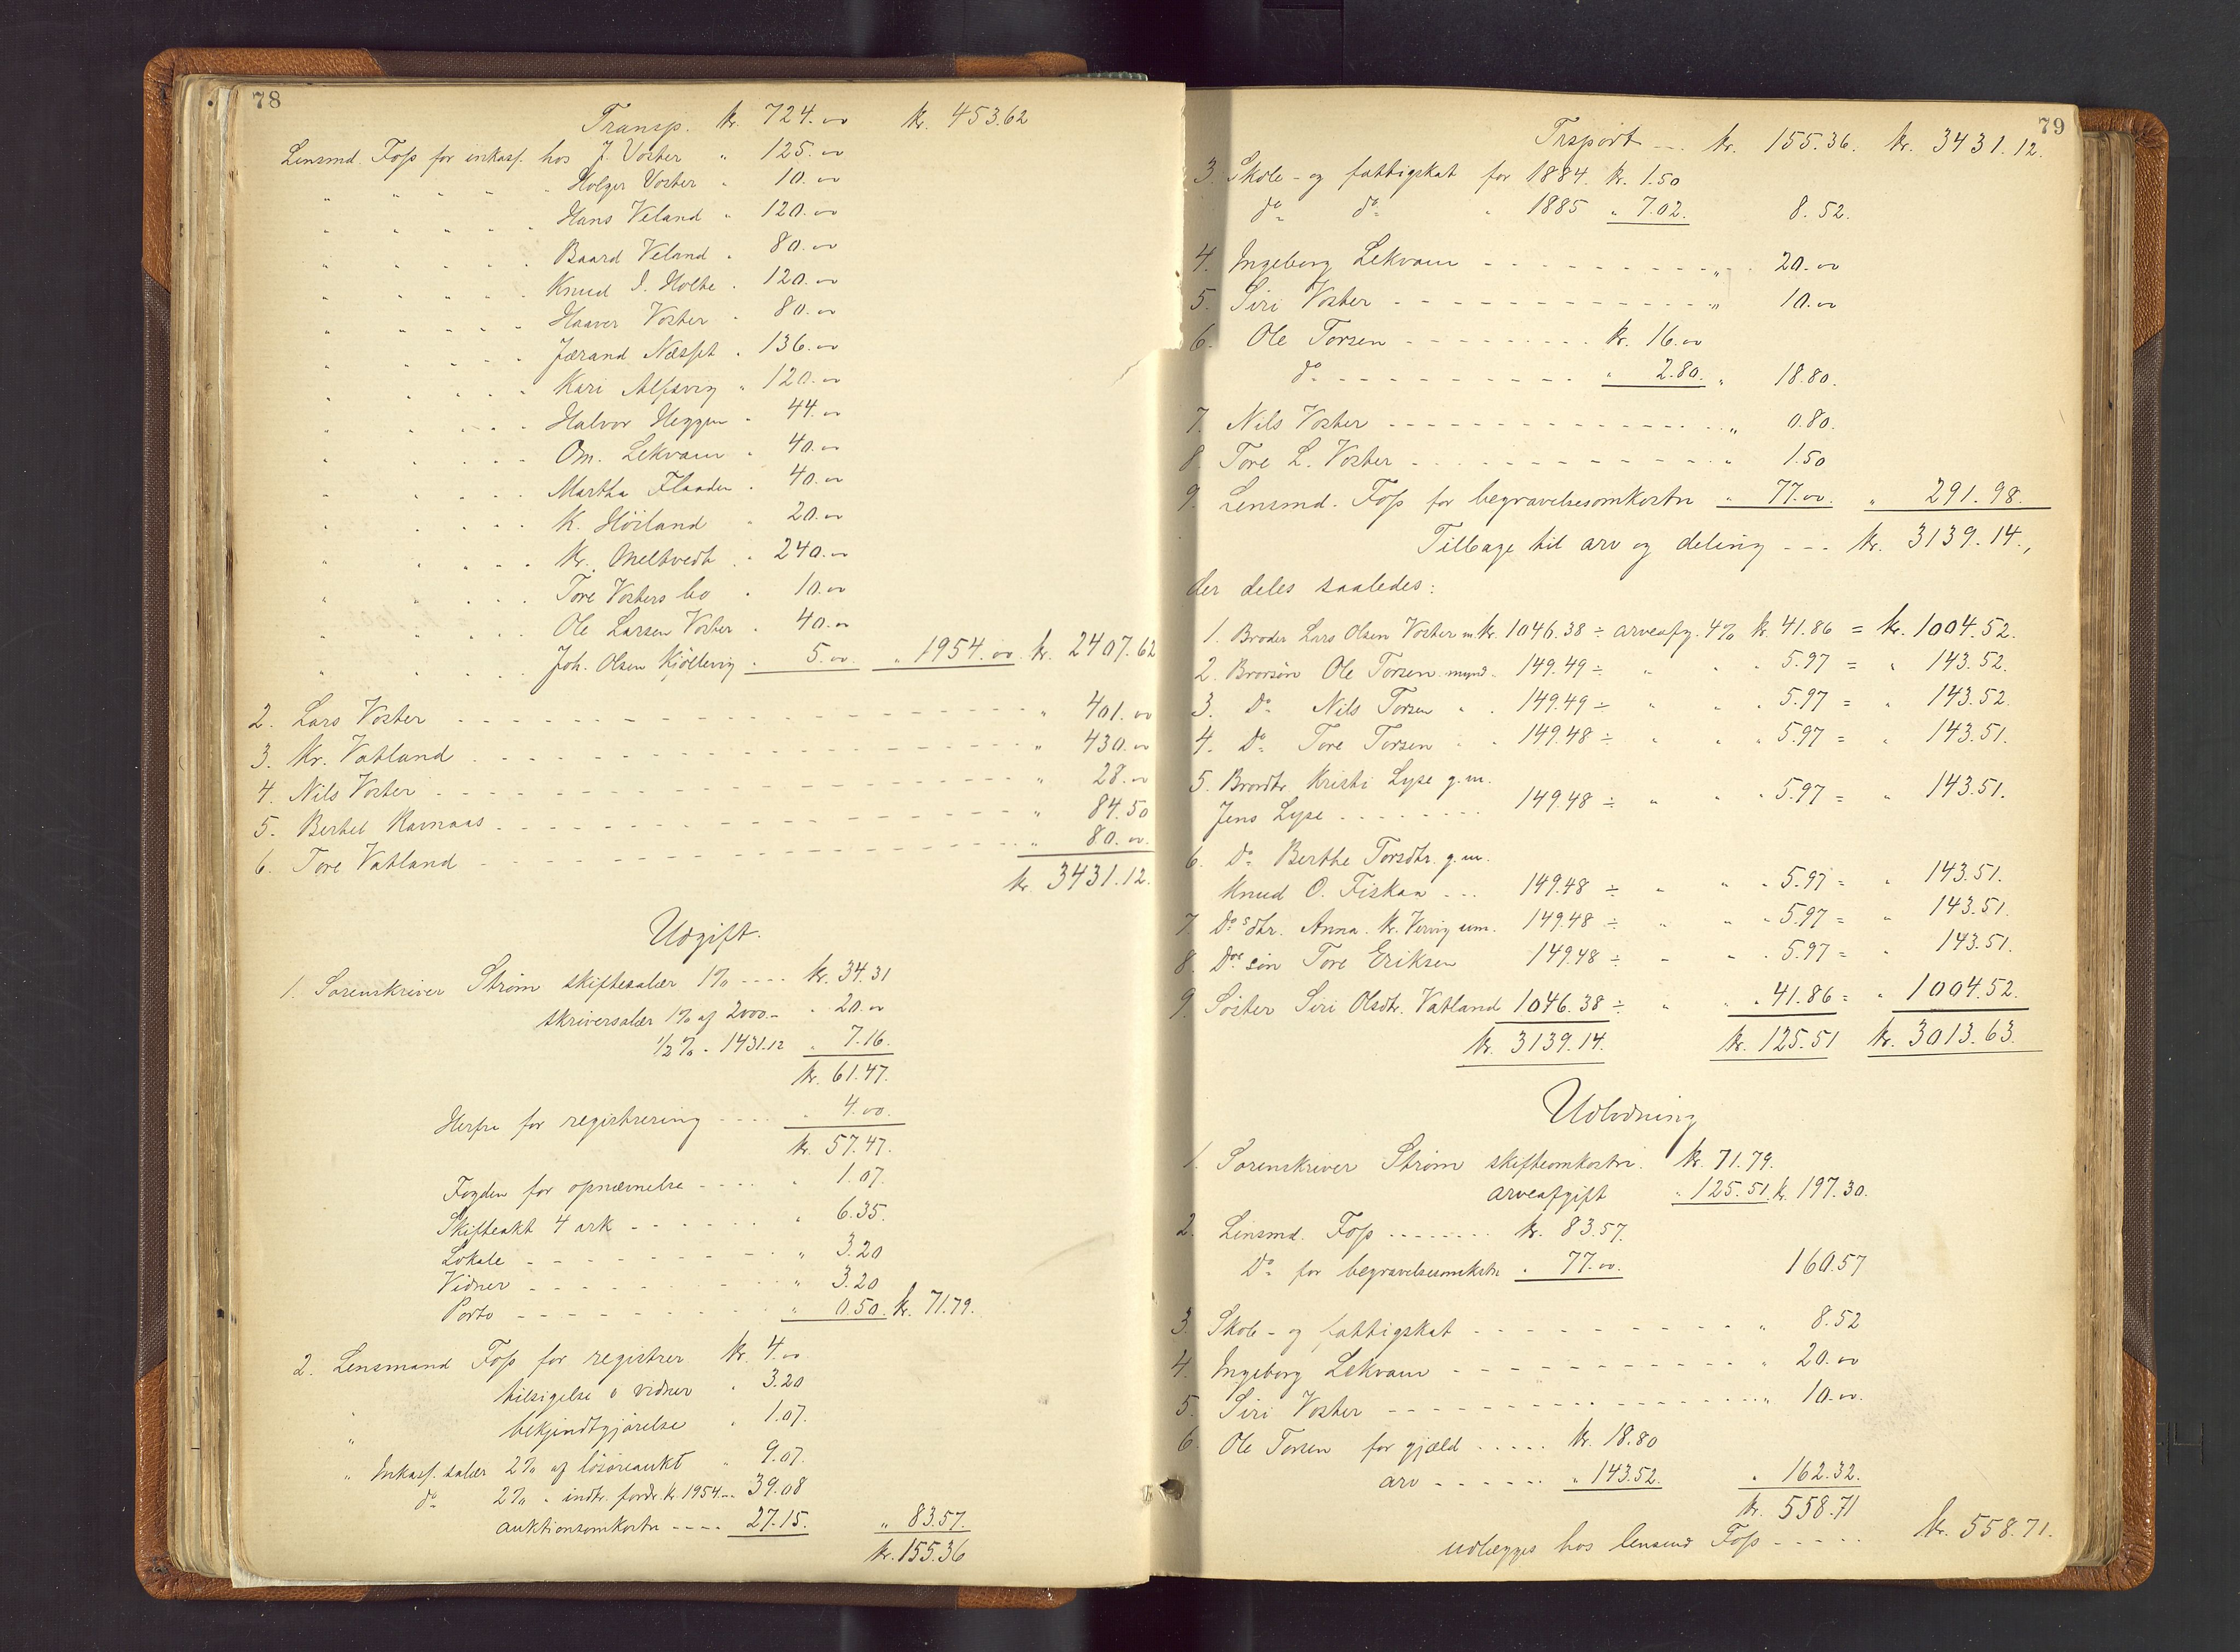 78
Transp. kr. 724.00 kr. 453.62
Lensmd. Foss for inkass. hos J. Voster " 125.00
" " " " " Holger Voster " 10.00
" " " " " Hans Veland " 120.00
" " " " " Baard Veland " 80.00
" " " " " Knud I. Holte " 120.00
" " " " " Haaver Voster " 80.00
" " " " " Jærand Næsset " 136.00
" " " " " Kari Alfsvig " 120.00
" " " " " Halvor Heggen " 44.00
" " " " " Om. Lekvam " 40.00
" " " " " Martha Flaaden " 40.00
" " " " " K. Höiland " 20.00
" " " " " Kr. Meltvedt " 240.00
" " " " " Tore Vosters bo " 10.00
" " " " " Ole Larsen Voster " 40.00
" " " " " Joh. Olsen Kjöllevig " 5.00 " 1954.00 kr. 2407.62
2. Lars Voster " 401.00
3. Kr. Vatland " 430.00
4. Nils Voster " 28.00
5. Berhel Ravnaas " 84.50
6. Tore Vatland " 80.00
kr. 3431.12.
Udgift.
1. Sorenskriver Strøm skiftesalær 1% ---- kr. 34.31
skriversalær 1% af 2000.- " 20.00
1/2% - 1431.12 " 7.16.
kr. 61.47.
Herfra for registrering ---- " 4.00.
kr. 57.47.
Fogden for opnævnelse ---- " 1.07.
Skifteakt 4 ark ---- " 6.35.
Lokale ---- " 3.20
Vidner ---- " 3.20
Porto ---- " 0.50. kr. 71.79.
2. Lensmand Foss for registrer. kr. 4.00
tilsigelse o vidner " 3.20
" bekjendtgjørelse " 1.07.
" Inkass. salær 2% af løsøreaukt " 9.07.
do 2% " indtr. fordr. kr. 1954.- - 39.08
auktionsomkostn ---- 27.15. " 83.57.
kr. 155.36
79
Trsport --- kr. 155.36. kr. 3431.12.
3. Skole- og fattigskat for 1884. kr. 1.50
do do " 1885 " 7.02. 8.52.
4. Ingeborg Lekvam " 20.00
5. Siri Voster " 10.00
6. Ole Torsen kr. 16.00
do " 2.80. " 18.80.
7. Nils Voster " 0.80.
8. Tore L. Voster " 1.50
9. Lensmd. Foss for begravelsesomkostn " 77.00. " 291.98.
Tilbage til arv og deling --- kr. 3139.14.,
der deles saaledes:
1. Broder Lars Olsen Voster m. kr. 1046.38 ÷ arveafg. 4% kr. 41.86 = kr. 1004.52.
2. Brorsøn Ole Torsen mynd. 149.49 ÷ " " " 5.97 = " 143.52.
3. Do Nils Torsen " " 149.49 ÷ " " " 5.97 = " 143.52.
4. Do Tore Torsen " " 149.48 ÷ " " " 5.97 = " 143.51.
5. Brordtr. Kristi Lyse g.m.
Jens Lyse ---- 149.48 ÷ " " " 5.97 = " 143.51.
6. Do Berthe Torsdtr. g.m.
Knud O. Fiskaa --- 149.48 ÷ " " " 5.97 = " 143.51.
7. Dos dtr. Anna Kr. Vervig um. 149.48 ÷ " " " 5.97 = " 143.51.
8. Dos søn Tore Eriksen 149.48 ÷ " " " 5.97 = " 143.51.
9. Søster Siri Olsdtr. Vatland 1046.38 ÷ " " " 41.86 = " 1004.52.
kr. 3139.14. kr. 125.51 kr. 3013.63.
Udlodning
1. Sorenskriver Strøm skifteomkostn. kr. 71.79.
arveafgift " 125.51. kr. 197.30.
2. Lensmd. Foss ---- kr. 83.57.
Do for begravelsesomkstn " 77.00. 160.57
3. Skole- og fattigskat " 8.52
4. Ingeborg Lekvam " 20.00
5. Siri Voster " 10.00.
6. Ole Torsen for gjæld ---- kr. 18.80
arv ---- " 143.52. " 162.32.
kr. 558.71
udlægges hos lensmd Foss ---- kr. 558.71.